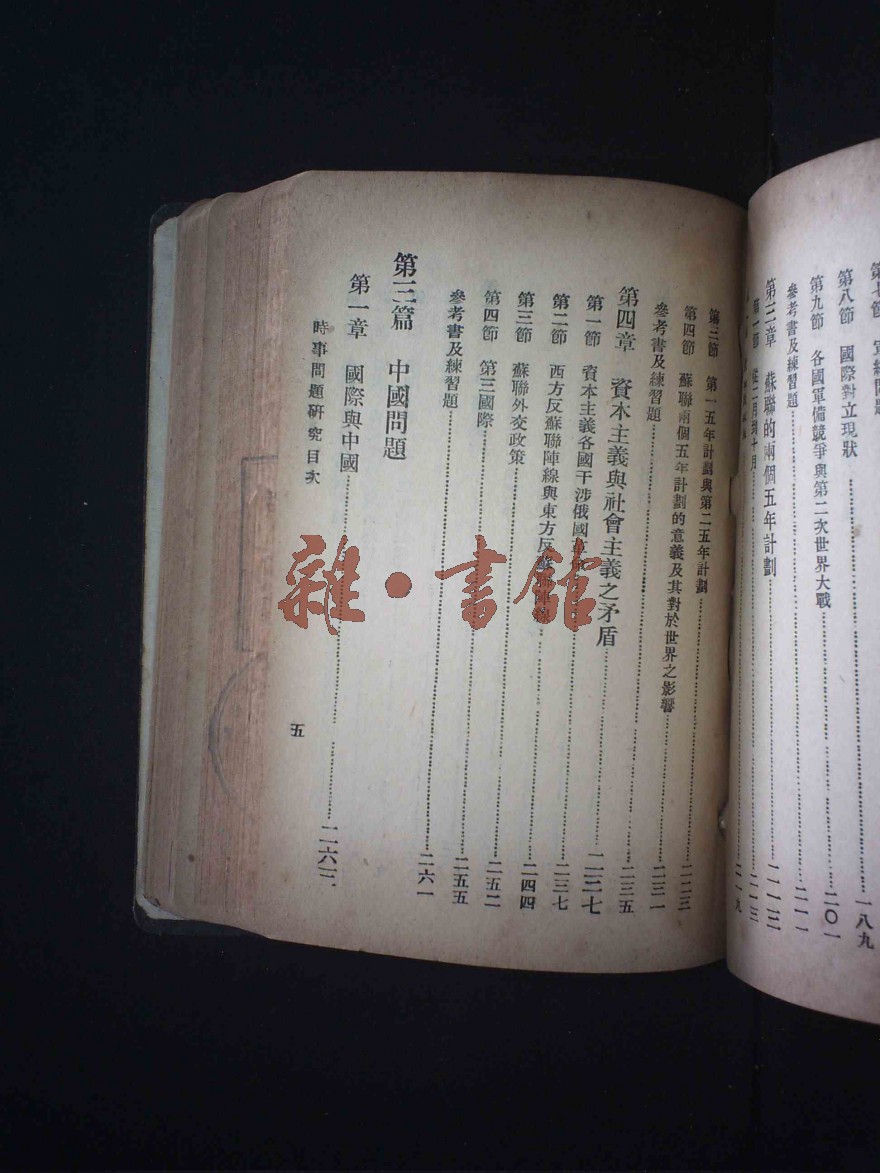 第八節 國際對立現狀 一八九
第九節 各國軍備競爭與第二次世界大戰 二〇一
參考書及練習題 二一一
第三章 蘇聯的兩個五年計劃 二一三
第一節 從二月到十月 二一三
二一九
第三節 第一五年計劃與第二五年計劃 二二三
第四節 蘇聯兩個五年計劃的意義及其對於世界之影響 二三一
參考書及練習題 二三五
第四章 資本主義與社會主義之矛盾 二三七
第一節 資本主義各國干涉俄國 二三七
第二節 西方反蘇聯陣線與東方反蘇聯陣線 二四四
第三節 蘇聯外交政策 二五二
第四節 第三國際 二五五
參考書及練習題 二六一
第三篇 中國問題
第一章 國際與中國 二六三
時事問題研究目次
五
雜·書館